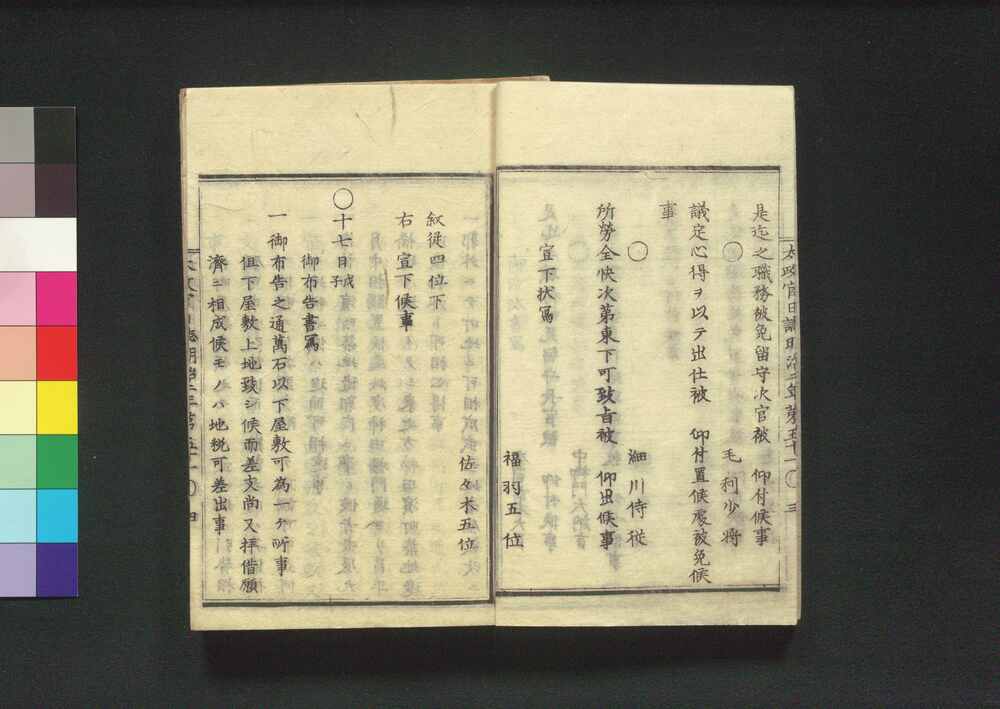 是迄之職務被免留守次官被　仰付候事
○　毛利少将
議定心得ヲ以テ出仕被　仰付置候處被免候
事
○　細川侍従
所勞全快次第東下可致旨被　仰出候事
宣下状寫
福羽五位
太政官日誌明治二年第五十一○三
佐々木五位
叙從四位下
右　宣下候事
○十七日戊子
御布告書寫
一御布告之通萬石以下屋敷可為一ケ所事
但下屋敷上地致シ候而差支尚又拝借願
濟ニ相成候モノハ地税可差出事
太政官日誌明治二年第五十一○四